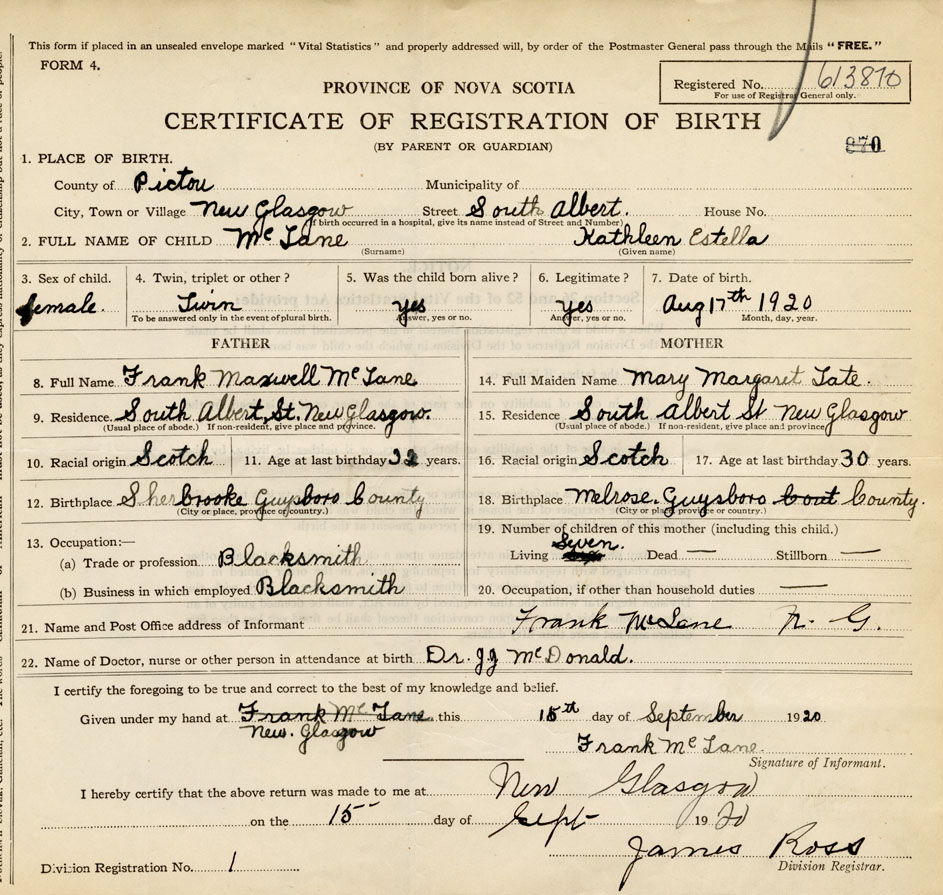 This form if placed in an unsealed envelope marked "Vital Statistics" and properly addressed will, by order of the Postmaster General pass through the Mails "FREE."
FORM 4.
Registered No. 613870
For use of Registrar General only.
PROVINCE OF NOVA SCOTIA
CERTIFICATE OF REGISTRATION OF BIRTH
(BY PARENT OR GUARDIAN)
870
1. PLACE OF BIRTH.
County of Pictou Municipality of
City, Town or Village New Glasgow Street South Albert. House No.
(If birth occurred in a hospital, give its name instead of Street and Number)
2. FULL NAME OF CHILD McLane Kathleen Estella
(Surname) (Given name)
3. Sex of child. 4. Twin, triplet or other? 5. Was the child born alive? 6. Legitimate? 7. Date of birth.
female. Twin yes yes Aug 17th 1920
To be answered only in the event of plural birth. Answer, yes or no. Answer, yes or no. Month, day, year.
FATHER MOTHER
8. Full Name Frank Maxwell McLane 14. Full Maiden Name Mary Margaret Tate.
9. Residence. South Albert St. New Glasgow. 15. Residence South Albert St New Glasgow
(Usual place of abode.) If non-resident, give place and province. (Usual place of abode.) If non-resident, give place and province.
10. Racial origin Scotch 11. Age at last birthday 32 years. 16. Racial origin Scotch 17. Age at last birthday 30 years.
12. Birthplace Sherbrooke Guysboro County 18. Birthplace Melrose. Guysboro Cout County.
(City or place, province or country.) (City or place, province or country.)
19. Number of children of this mother (including this child.)
13. Occupation:—
Seven.
(a) Trade or profession Blacksmith Living Dead — Stillborn —
(b) Business in which employed Blacksmith 20. Occupation, if other than household duties —
21. Name and Post Office address of Informant Frank McLane N. G.
22. Name of Doctor, nurse or other person in attendance at birth Dr. JJ McDonald.
I certify the foregoing to be true and correct to the best of my knowledge and belief.
Given under my hand at Frank McLane this 15th day of September 1920
New. Glasgow
Frank McLane.
Signature of Informant.
I hereby certify that the above return was made to me at New Glasgow
on the 15 day of Sept 1920
James Ross
Division Registrar.
Division Registration No. 1